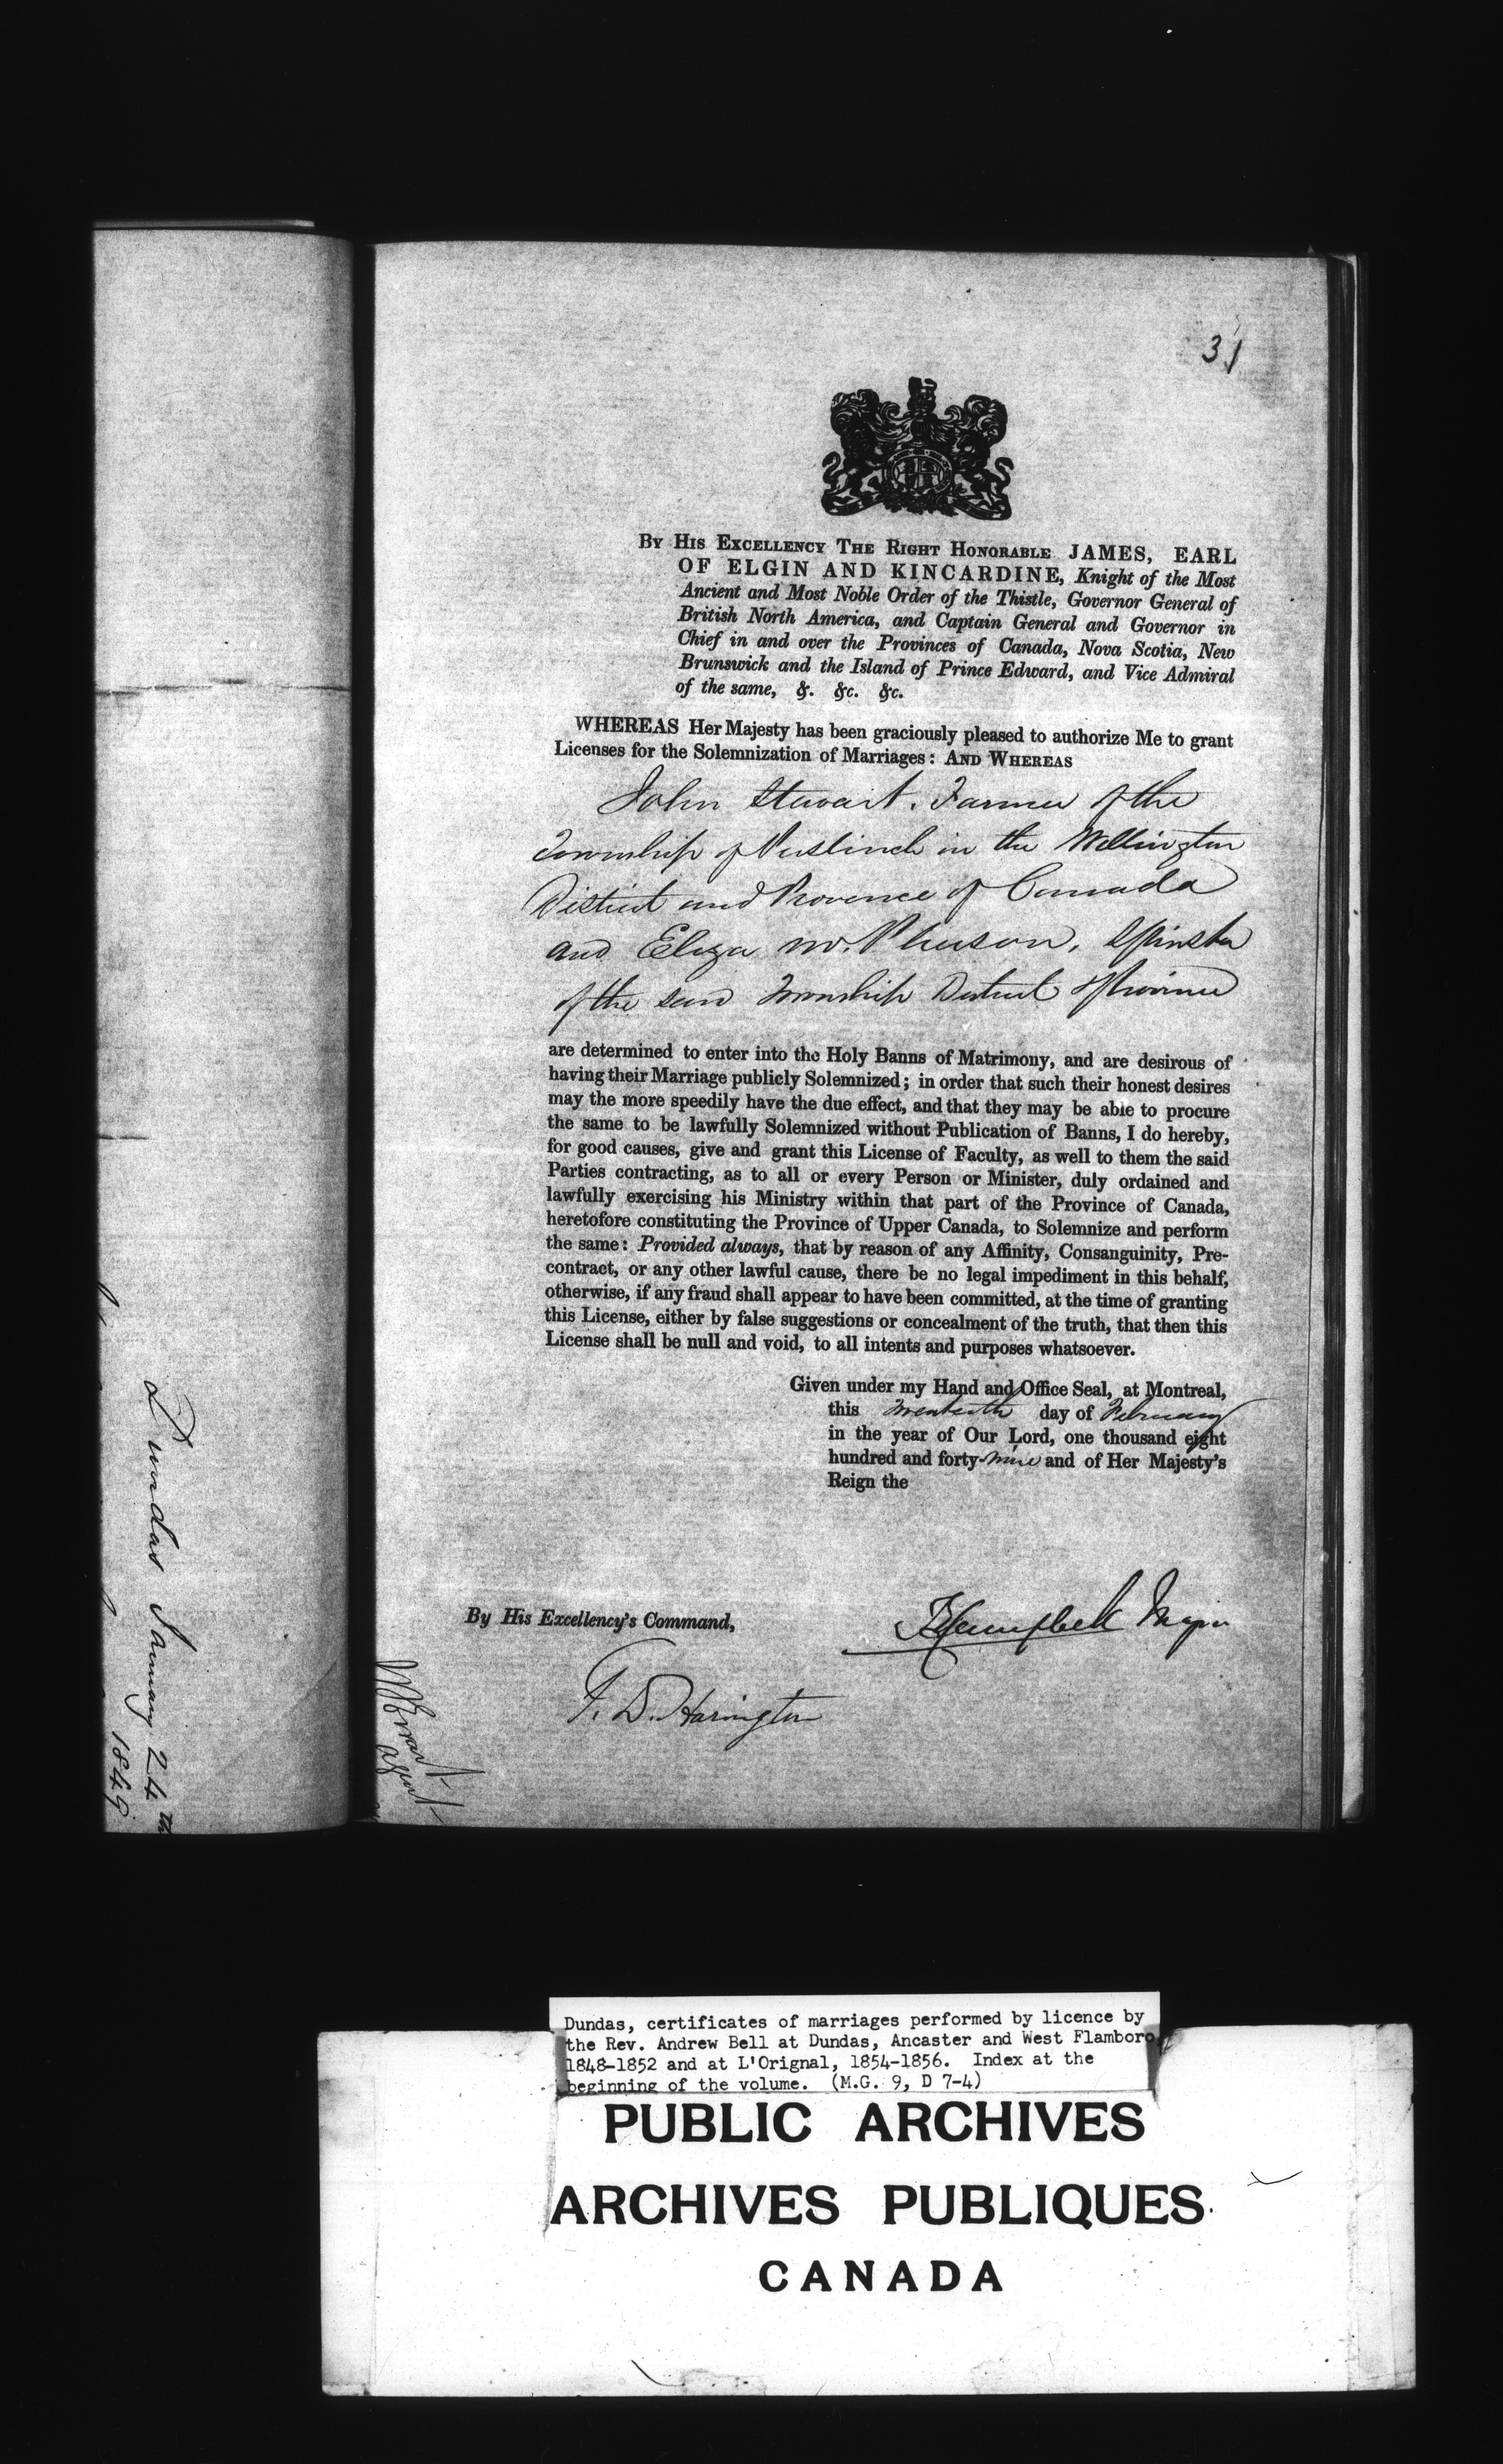 31
BY HIS EXCELLENCY THE RIGHT HONORABLE JAMES, EARL
OF ELGIN AND KINCARDINE, Knight of the Most
Ancient and Most Noble Order of the Thistle, Governor General of
British North America, and Captain General and Governor in
Chief in and over the Provinces of Canada, Nova Scotia, New
Brunswick and the Island of Prince Edward, and Vice Admiral
of the same, &. &c. &c.
WHEREAS Her Majesty has been graciously pleased to authorize Me to grant
Licenses for the Solemnization of Marriages: AND WHEREAS
John Stewart. Farmer of the
Township of Puslinch in the Wellington
District and Province of Canada
and Eliza McPherson, Spinster
of the said Township District & Province
are determined to enter into the Holy Banns of Matrimony, and are desirous of
having their Marriage publicly Solemnized; in order that such their honest desires
may the more speedily have the due effect, and that they may be able to procure
the same to be lawfully Solemnized without Publication of Banns, I do hereby,
for good causes, give and grant this License of Faculty, as well to them the said
Parties contracting, as to all or every Person or Minister, duly ordained and
lawfully exercising his Ministry within that part of the Province of Canada,
heretofore constituting the Province of Upper Canada, to Solemnize and perform
the same: Provided always, that by reason of any Affinity, Consanguinity, Pre-
contract, or any other lawful cause, there be no legal impediment in this behalf,
otherwise, if any fraud shall appear to have been committed, at the time of granting
this License, either by false suggestions or concealment of the truth, that then this
License shall be null and void, to all intents and purposes whatsoever.
Given under my Hand and Office Seal, at Montreal,
this Twentieth day of February
in the year of Our Lord, one thousand eight
hundred and forty-nine and of Her Majesty's
Reign the
By His Excellency's Command,
Campbell Major
T. D. Harington
agent
Dundas January 24th
1849
Dundas, certificates of marriages performed by licence by
the Rev. Andrew Bell at Dundas, Ancaster and West Flamboro,
1848-1852 and at L'Orignal, 1854-1856. Index at the
beginning of the volume. (M.G. 9, D 7-4)
PUBLIC ARCHIVES
ARCHIVES PUBLIQUES
CANADA